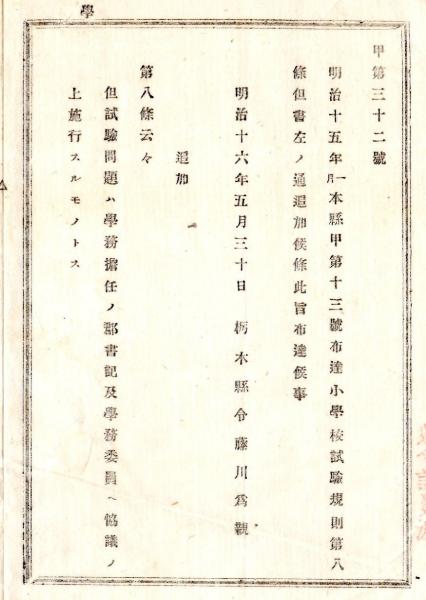 學
甲第三十二號
明治十五年一月本縣甲第十三號布達小學校試驗規則第八
條但書左ノ通追加候條此旨布達候事
明治十六年五月三十日　栃木縣令藤川爲親
追加
第八條云々
但試驗問題ハ學務擔任ノ郡書記及學務委員ヘ協議ノ
上施行スルモノトス